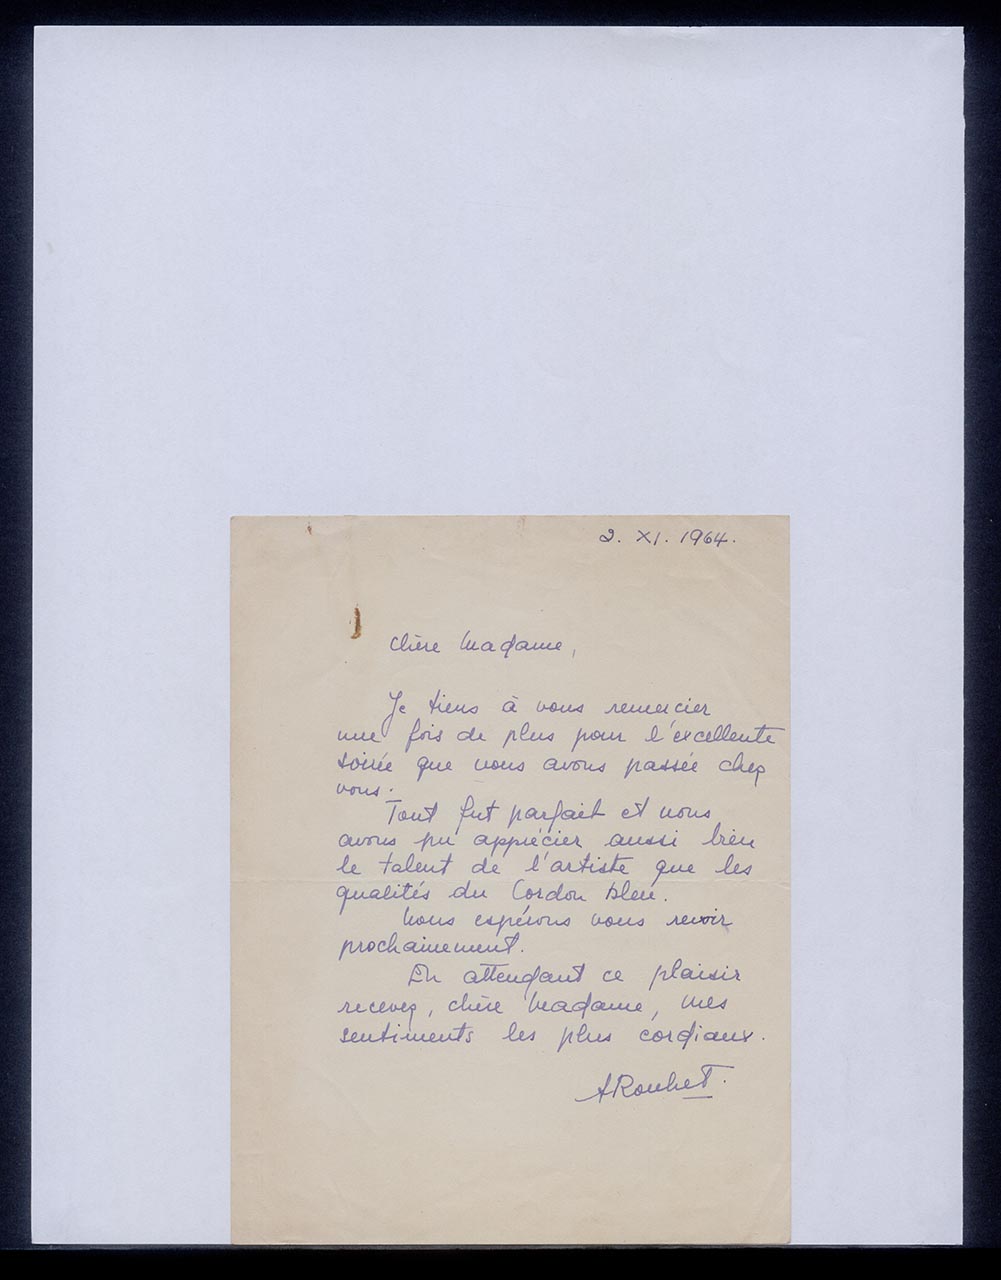 2. XI. 1964.
Chère Madame,
Je tiens à vous remercier
une fois de plus pour l'excellente
soirée que nous avons passée chez
vous.
Tout fut parfait et nous
avons pu apprécier aussi bien
le talent de l'artiste que les
qualités du Cordon bleu.
Nous espérons vous revoir
prochainement.
En attendant ce plaisir
recevez, chère Madame, mes
sentiments les plus cordiaux.
ARouhet.